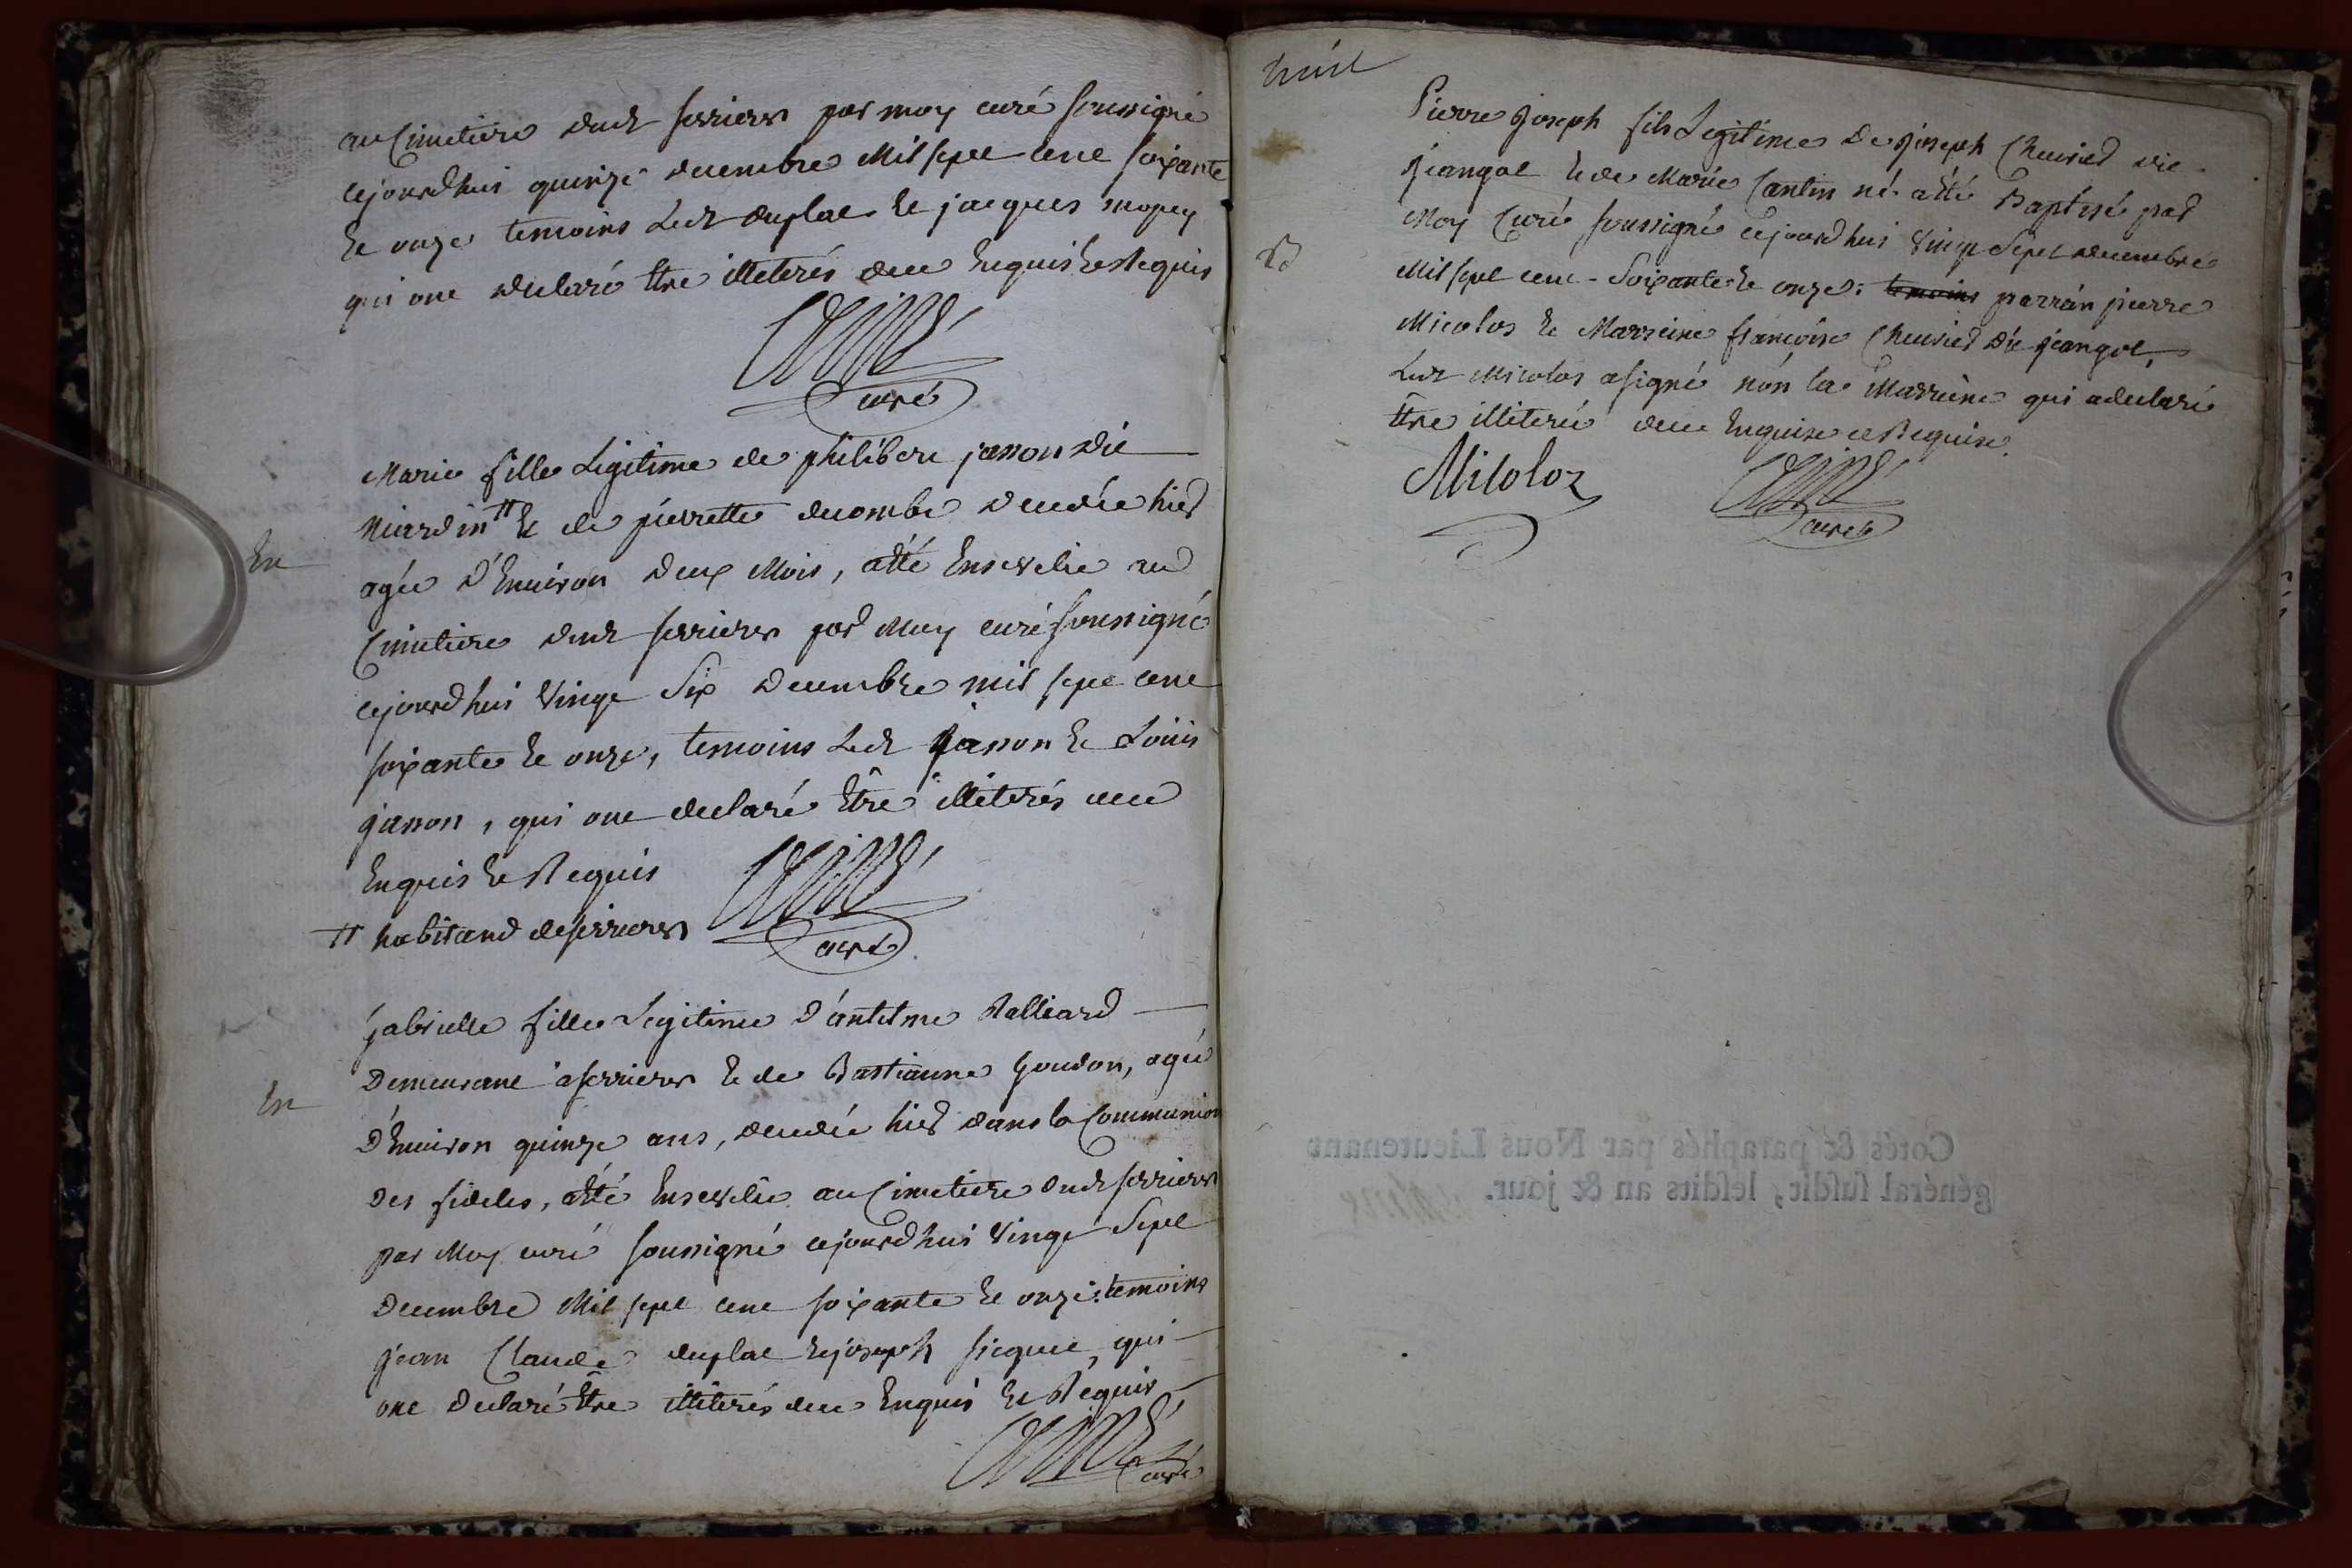 au Cimetiere dudt serrieres par moy curé soussigné
cejourdhui quinze decembre mil sept cent soixante
et onze temoins Ledt duplat et jacques
qui ont declaré être illeterés de ce Enquis et Requis
curé
Marie fille Legitime de philibert janon dit
# et de pierrette decombe decedée hier
En
agée d'Environ deux Mois, a été Ensevelie au
Cimetiere dudt serrieres par Moy curé soussigné
cejourdhui vingt Six decembre mil sept cent
soixante et onze, temoins Ledt janon et Loüis
janon, qui ont declaré être illeterés de ce
Enquis et Requis
# habitand de serrieres
curé
Gabrielle fille Legitime d'antelme Ralliard
Demeurant a serrieres et de Bastianne goudon, agée
En
d'Environ quinze ans, decedée hier dans la Communion
des fideles, a été Ensevelie au Cimetiere dudt serrieres
par Moy curé soussigné cejourdhui vingt Sept
decembre Mil sept cent soixante et onze: temoins
jean Claude duplat et joseph qui
ont declaré être illiterés de ce Enquis et Requis
curé
huit
Pierre joseph fils Legitime de joseph Cheurier dit
jeangot et de Marie Cantin né a été Baptisé par
Moy Curé soussigné cejourdhui vingt Sept decembre
B
Mil sept cent Soixante et onze: temoins parrain pierre
Micolos et Marreine françoise Cheurier dit jeangot,
Ledt Micolos a signé nón la Marreine qui a declaré
être illiterée de ce Enquise et Requise.
Micoloz
curé
Cotés & paraphés par Nous Lieutenant
général susdit, lesdits an & jour.